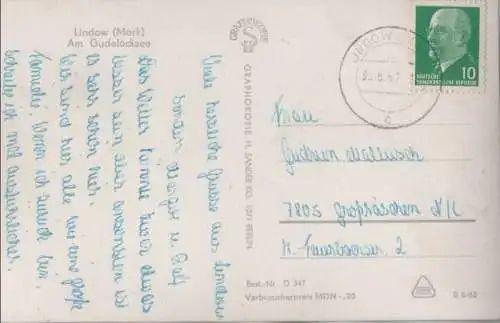 Lindow (Mark)
Am Gudelacksee
Viele herzliche Grüsse aus Lindow
senden
Das Wetter könnte zwar etwas
besser sein aber ansonsten ist
es sehr schön hier.
Wir sind hier alle wie eine große
Familie. Wenn ich zurück bin,
schreibe ich mal ausführlicher.
GRAPHOKOPIE
GRAPHOKOPIE H. SANDER KG, BERLIN
LINDOW
DEUTSCHE
DEMOKRATISCHE REPUBLIK
10
Frau
Gudrun
7805 Großräschen N/L
2
Best.-Nr. D 347
Verbraucherpreis MDN -,20
B 6/65